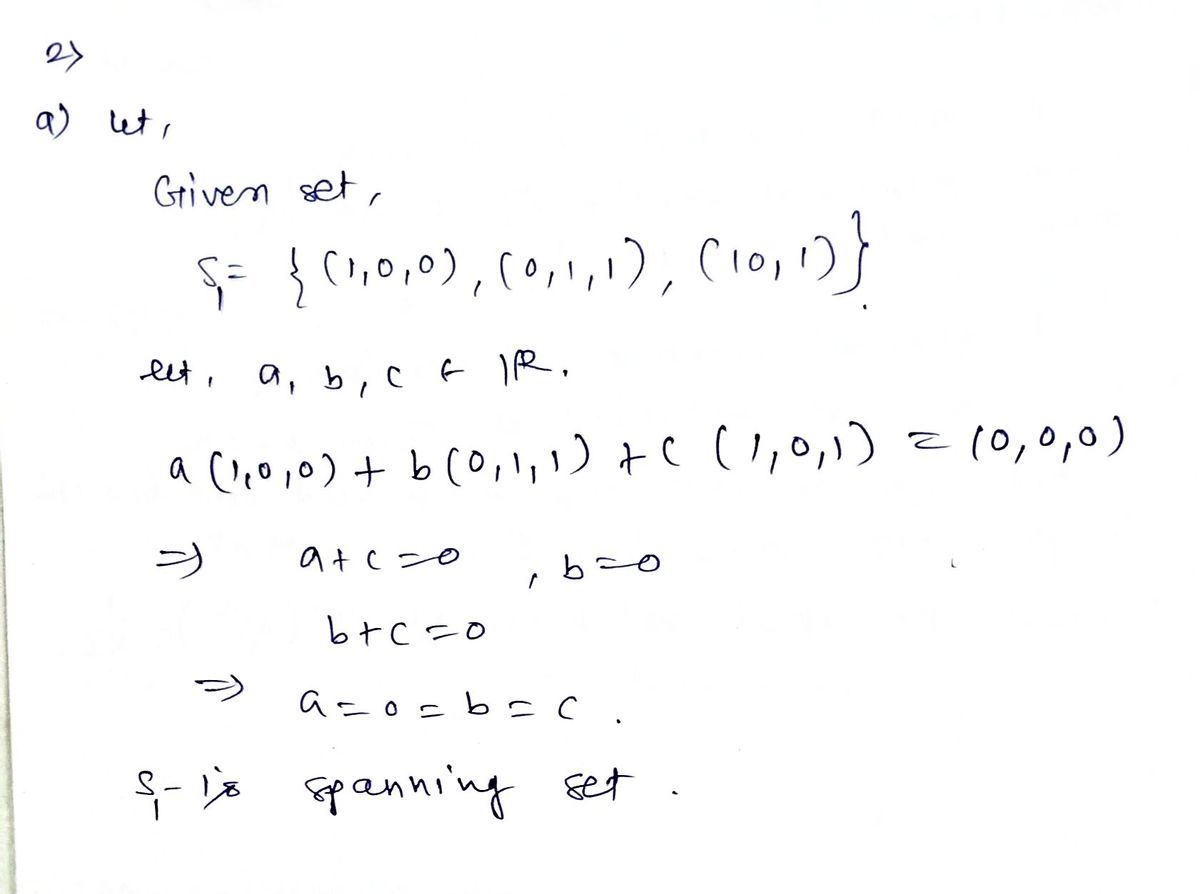 2)
a) let,
Given set,
S₁ = { (1,0,0), (0,1,1), (10,1)}.
let, a, b, c ∈ IR.
a (1,0,0) + b (0,1,1) + c (1,0,1) = (0,0,0)
⇒ a+c=0 , b=0
b+c=0
⇒ a=0=b=c.
S₁- is spanning set.